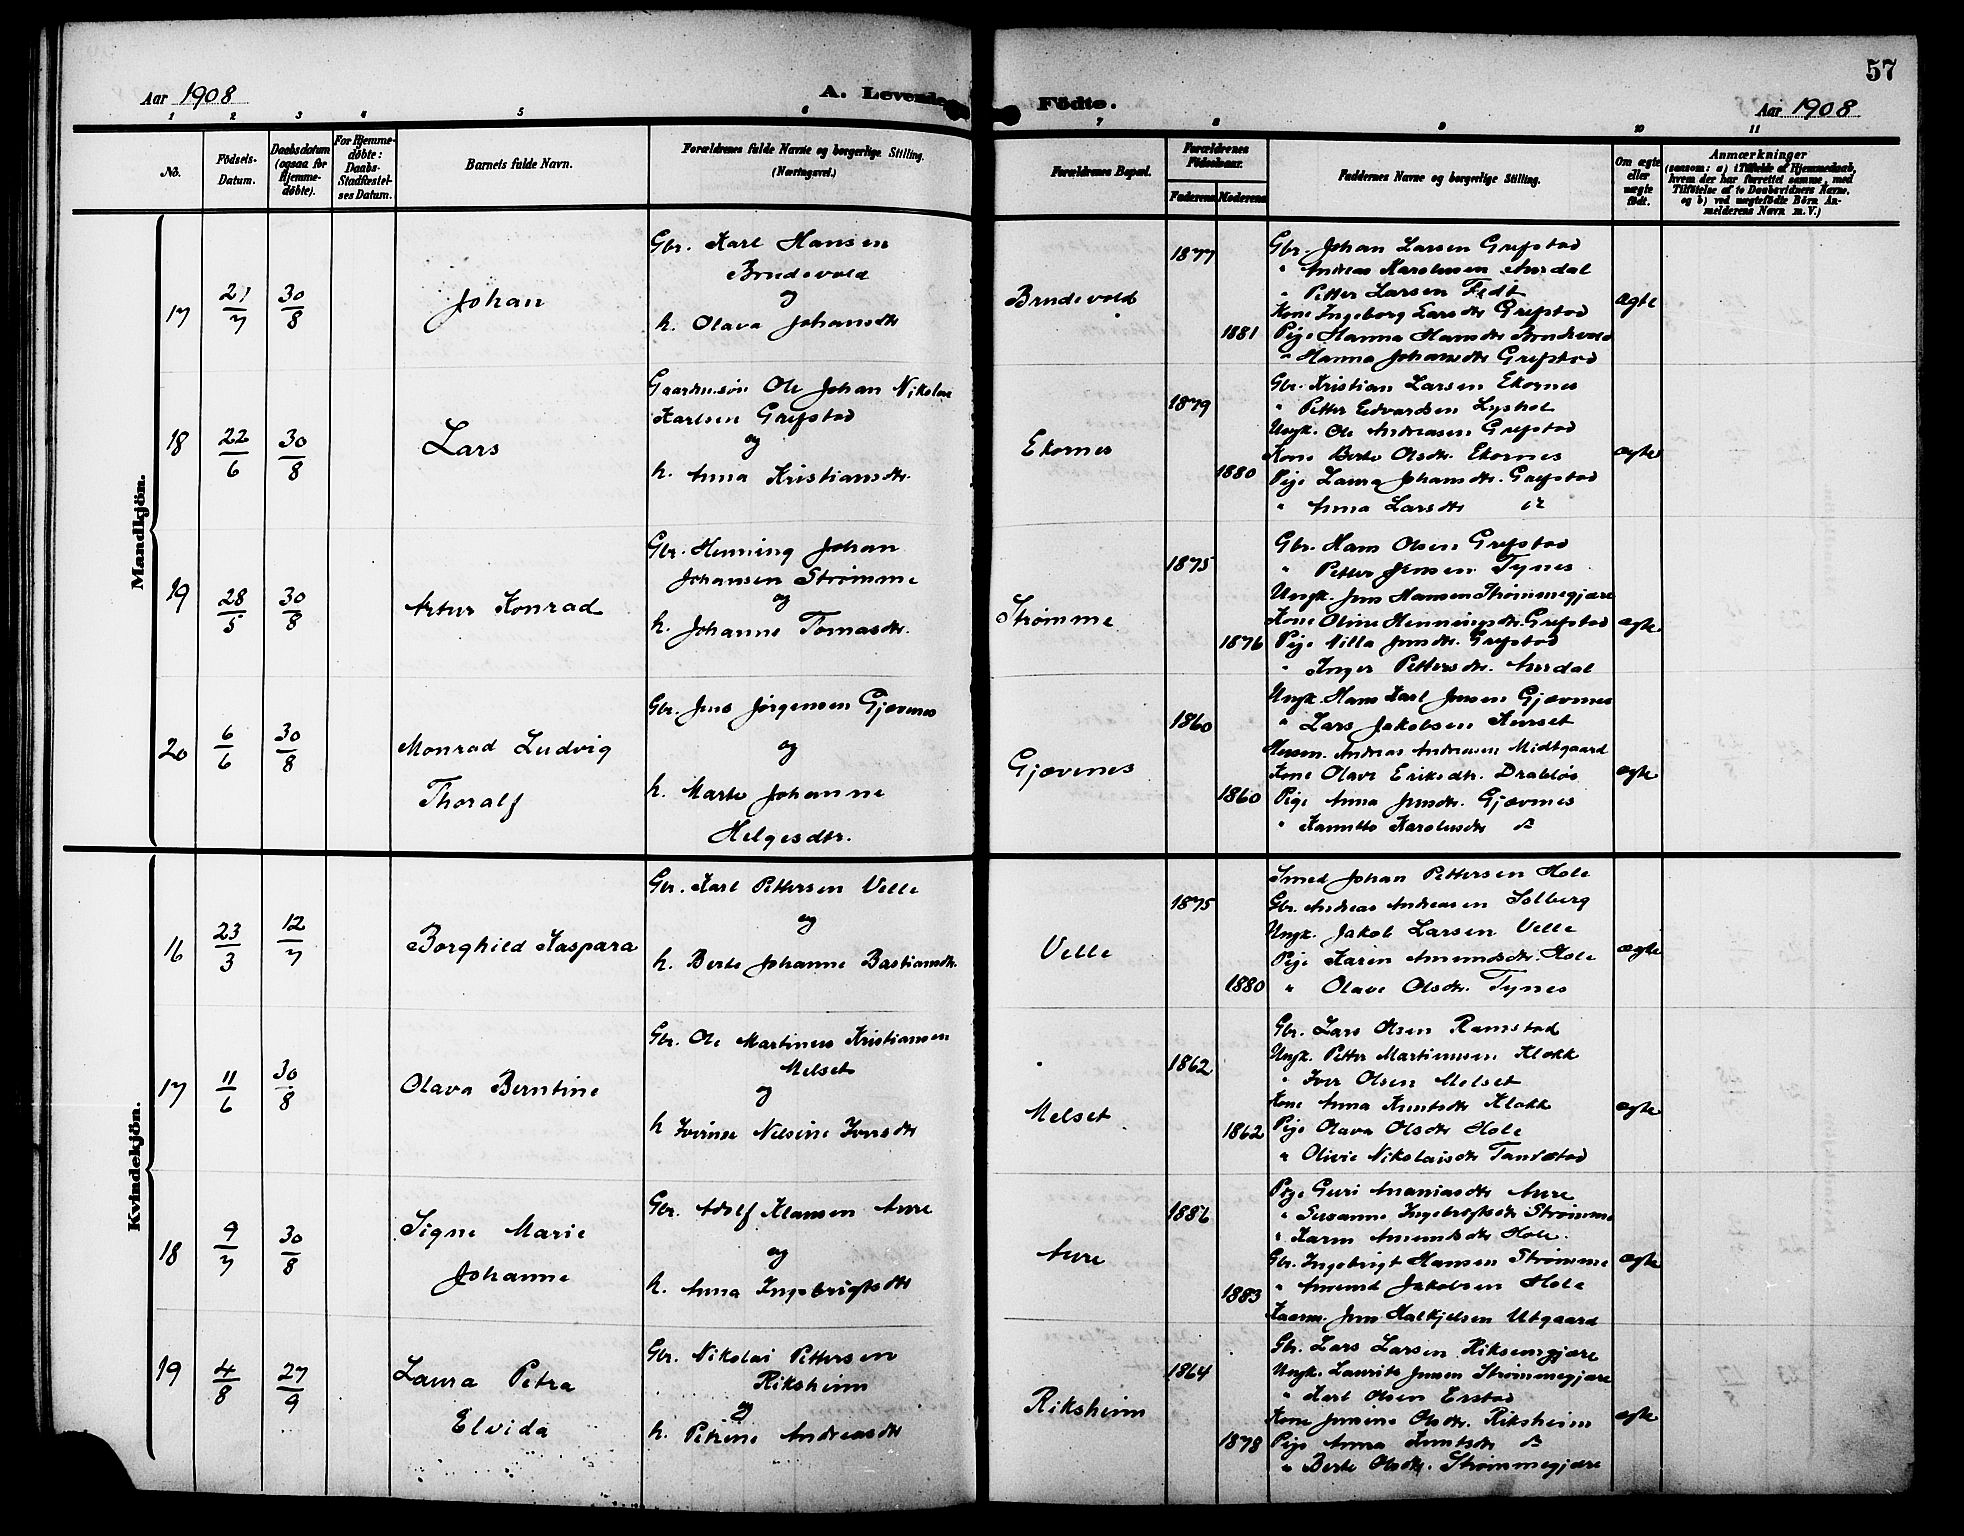 57
Aar 1908
A. Levende Födte.
Aar 1908
1 2 3 4 5 6 7 8 9 10 11
No.
Födsels-
Datum.
Daabsdatum
(ogsaa for
Hjemme-
döbte).
For Hjemme-
døbte:
Daabs-
Stadfæstel-
ses Datum.
Barnets fulde Navn.
Forældrenes fulde Navne og borgerlige Stilling.
(Næringsvei.)
Forældrenes Bopæl.
Forældrenes
Födselsaar.
Faderens
Moderens
Faddernes Navne og borgerlige Stilling.
Om ægte
eller
uægte
født.
Anmærkninger
(saasom: a) i Tilfælde af Hjemmedaab,
hvem der har forrettet samme, med
Tilföielse af to Daabsvidners Navne,
og b) ved uægtefödte Börn An-
melderens Navn m. V.)
Mandkjön.
17
21/7
30/8
Johan
Gbr. Karl Hansen
Brudevold
og
h. Olava Johansdtr
Brudevold
1877
1881
Gbr. Johan Larsen Grefstad
" Andreas Karolusen Aurdal
" Petter Larsen Fedt
Kone Ingeborg Larsdtr Grefstad
Pige Hanna Hansdtr Brudevold
" Hanna Johansdtr Grefstad
ægte
18
22/6
30/8
Lars
Gaardmsøn Ole Johan Nikolai
Karlsen Grefstad
og
h. Anna Kristiansdtr.
Ekornes
1879
1880
Gbr. Kristian Larsen Ekornes
" Petter Edvardsen Lyshol
Ungk. Ole Andreasen Grefstad
Kone Berte Olsdtr. Ekornes
Pige Laura Johansdtr. Grefstad
" Anna Larsdtr
ægte
19
28/5
30/8
Artur Konrad
Gbr. Henning Johan
Johansen Strømme
og
h. Johanne Tomasdtr.
Strømme
1875
1876
Gbr. Hans Olsen Grefstad
" Petter Jensen Tynes
Ungk. Jens Hansen Strømmegjære
Kone Oline Henningsdtr. Grefstad
Pige Nilla Jensdtr. Grefstad
" Inger Pettersdtr. Aurdal
ægte.
20
6/6
30/8
Monrad Ludvig
Thoralf
Gbr. Jens Jørgensen Gjævenes
og
h. Marte Johanne
Helgesdtr.
Gjævenes
1860
1860
Ungk. Hans Karl Jensen Gjævnes
" Lars Jakobsen Kurset
Andreas Andreasen Midtgaard
Kone Olave Eriksdtr. Drabløs
Pige Anna Jensdtr. Gjævnes
" Karolusdtr
ægte
Kvindekjön.
16
23/3
12/7
Borghild Kaspara
Gbr. Karl Pettersen Velle
og
h. Berte Johanne Bastiansdtr.
Velle
1875
1880
Smed Johan Pettersen Hole
Gbr. Andreas Andreasen Solberg
Ungk. Jakob Larsen Velle
Pige Karen Amundsdtr. Hole
" Olave Olsdtr. Tynes
ægte
17
11/6
30/8
Olava Berntine
Gbr. Ole Martinus Kristiansen
Melset
og
h Iverine Nilsine Iversdtr
Melset
1862
1862
Gbr. Lars Olsen Ramstad
Ungk. Petter Martinusen Klokk
" Iver Olsen Melset
Kone Anna Knutsdtr Klokk
Pige Olava Olsdtr Hole
" Olivie Nikolaisdtr Tandstad
ægte
18
9/7
30/8
Signe Marie
Johanne
Gbr. Adolf Klausen Aure
og
h. Anna Ingebrigtsdtr
Aure
1886
1883
Pige Guri Ananiasdtr Aure
" Susanne Ingebrigtsdtr Strømme
" Karen Amundsdtr Hole.
Gbr. Ingebrigt Hansen Strømme
" Amund Jakobsen Hole
Kaarm. Jens Halkjelsen Utgaard
ægte
19
4/8
27/9
Laura Petra
Elvida
Gbr. Nikolai Pettersen
Riksheim
og
h. Petrine Andreasdtr
Riksheim
1864
1878
Gbr. Lars Larsen Riksemgjære
Ungk. Laurits Jensen Strømmegjære
" Karl Olsen Erstad
Kone Jensine Olsdtr. Riksheim
Pige Anna Knutsdtr
" Berte Olsdtr. Strømmegjære
ægte